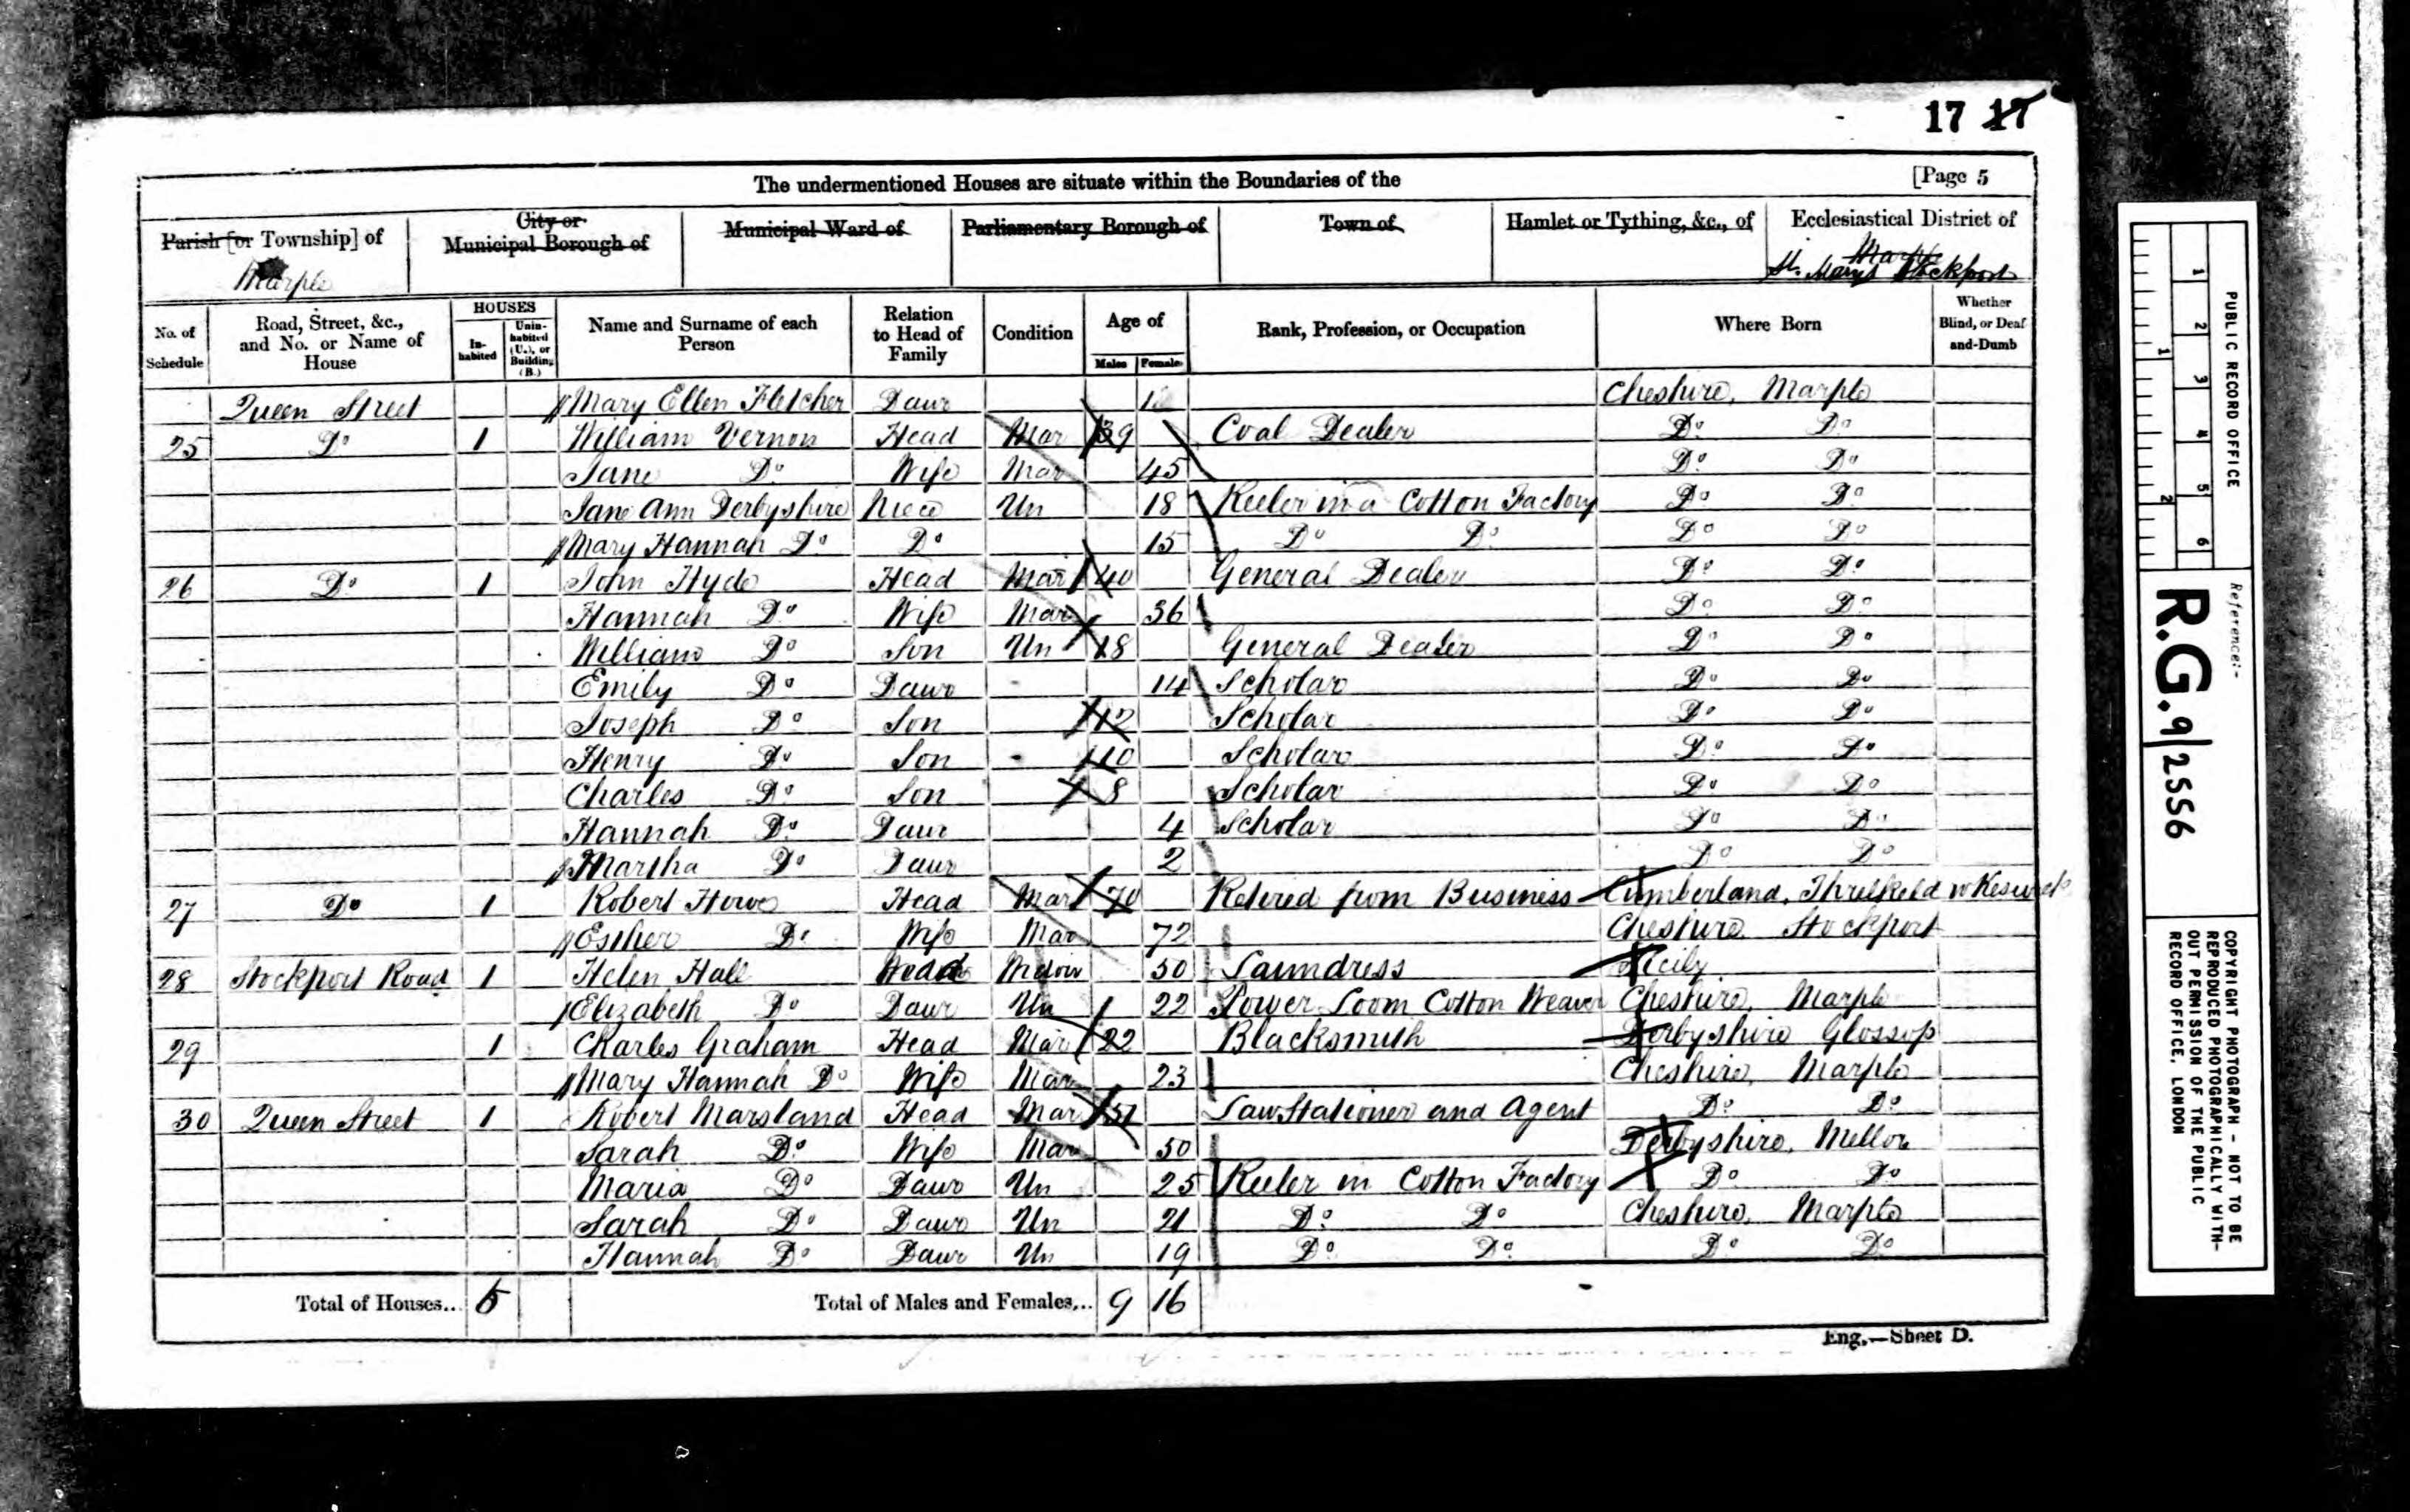 17 17
The undermentioned Houses are situate within the Boundaries of the [Page 5
Parish [or Township] of City or Municipal Borough of Municipal Ward of Parliamentary Borough of Town of Hamlet or Tything, &c., of Ecclesiastical District of
Marple Marple
St. Mary's Stockport
No. of Schedule Road, Street, &c., and No. or Name of House HOUSES Inhabited Uninhabited (U.), or Building (B.) Name and Surname of each Person Relation to Head of Family Condition Age of Males Females Rank, Profession, or Occupation Where Born Whether Blind, or Deaf-and-Dumb
Queen Street Mary Ellen Fletcher Daur Cheshire, Marple
25 Do 1 William Vernon Head Mar 39 Coal Dealer Do Do
Jane Do Wife Mar 45 Do Do
Jane Ann Derbyshire Niece Un 18 Reeler in a Cotton Factory Do Do
Mary Hannah Do Do 15 Do Do Do Do
26 Do 1 John Hyde Head Mar 40 General Dealer Do Do
Hannah Do Wife Mar 36 Do Do
William Do Son Un 18 General Dealer Do Do
Emily Do Daur 14 Scholar Do Do
Joseph Do Son 12 Scholar Do Do
Henry Do Son 10 Scholar Do Do
Charles Do Son 8 Scholar Do Do
Hannah Do Daur 4 Scholar Do Do
Martha Do Daur 2 Do Do
27 Do 1 Robert Head Mar 70 Retired from Business Cumberland, Threlkeld
Esther Do Wife Mar 72 Cheshire Stockport
28 Stockport Road 1 Helen Hall Head 50 Laundress Sicily
Elizabeth Do Daur Un 22 Power Loom Cotton Weaver Cheshire, Marple
29 1 Charles Graham Head Mar 22 Blacksmith Derbyshire Glossop
Mary Hannah Do Wife Mar 23 Cheshire, Marple
30 Queen Street 1 Robert Marsland Head Mar 51 Law Stationer and Agent Do Do
Sarah Do Wife Mar 50 Derbyshire, Mellor
Maria Do Daur Un 25 Reeler in Cotton Factory Do Do
Sarah Do Daur Un 21 Do Do Cheshire, Marple
Hannah Do Daur Un 19 Do Do Do Do
Total of Houses... Total of Males and Females... 9 16
Eng.—Sheet D.
1 2 3 4 5 6
1 2
PUBLIC RECORD OFFICE
Reference:-
R.G. 9/2556
COPYRIGHT PHOTOGRAPH - NOT TO BE
REPRODUCED PHOTOGRAPHICALLY WITH-
OUT PERMISSION OF THE PUBLIC
RECORD OFFICE, LONDON